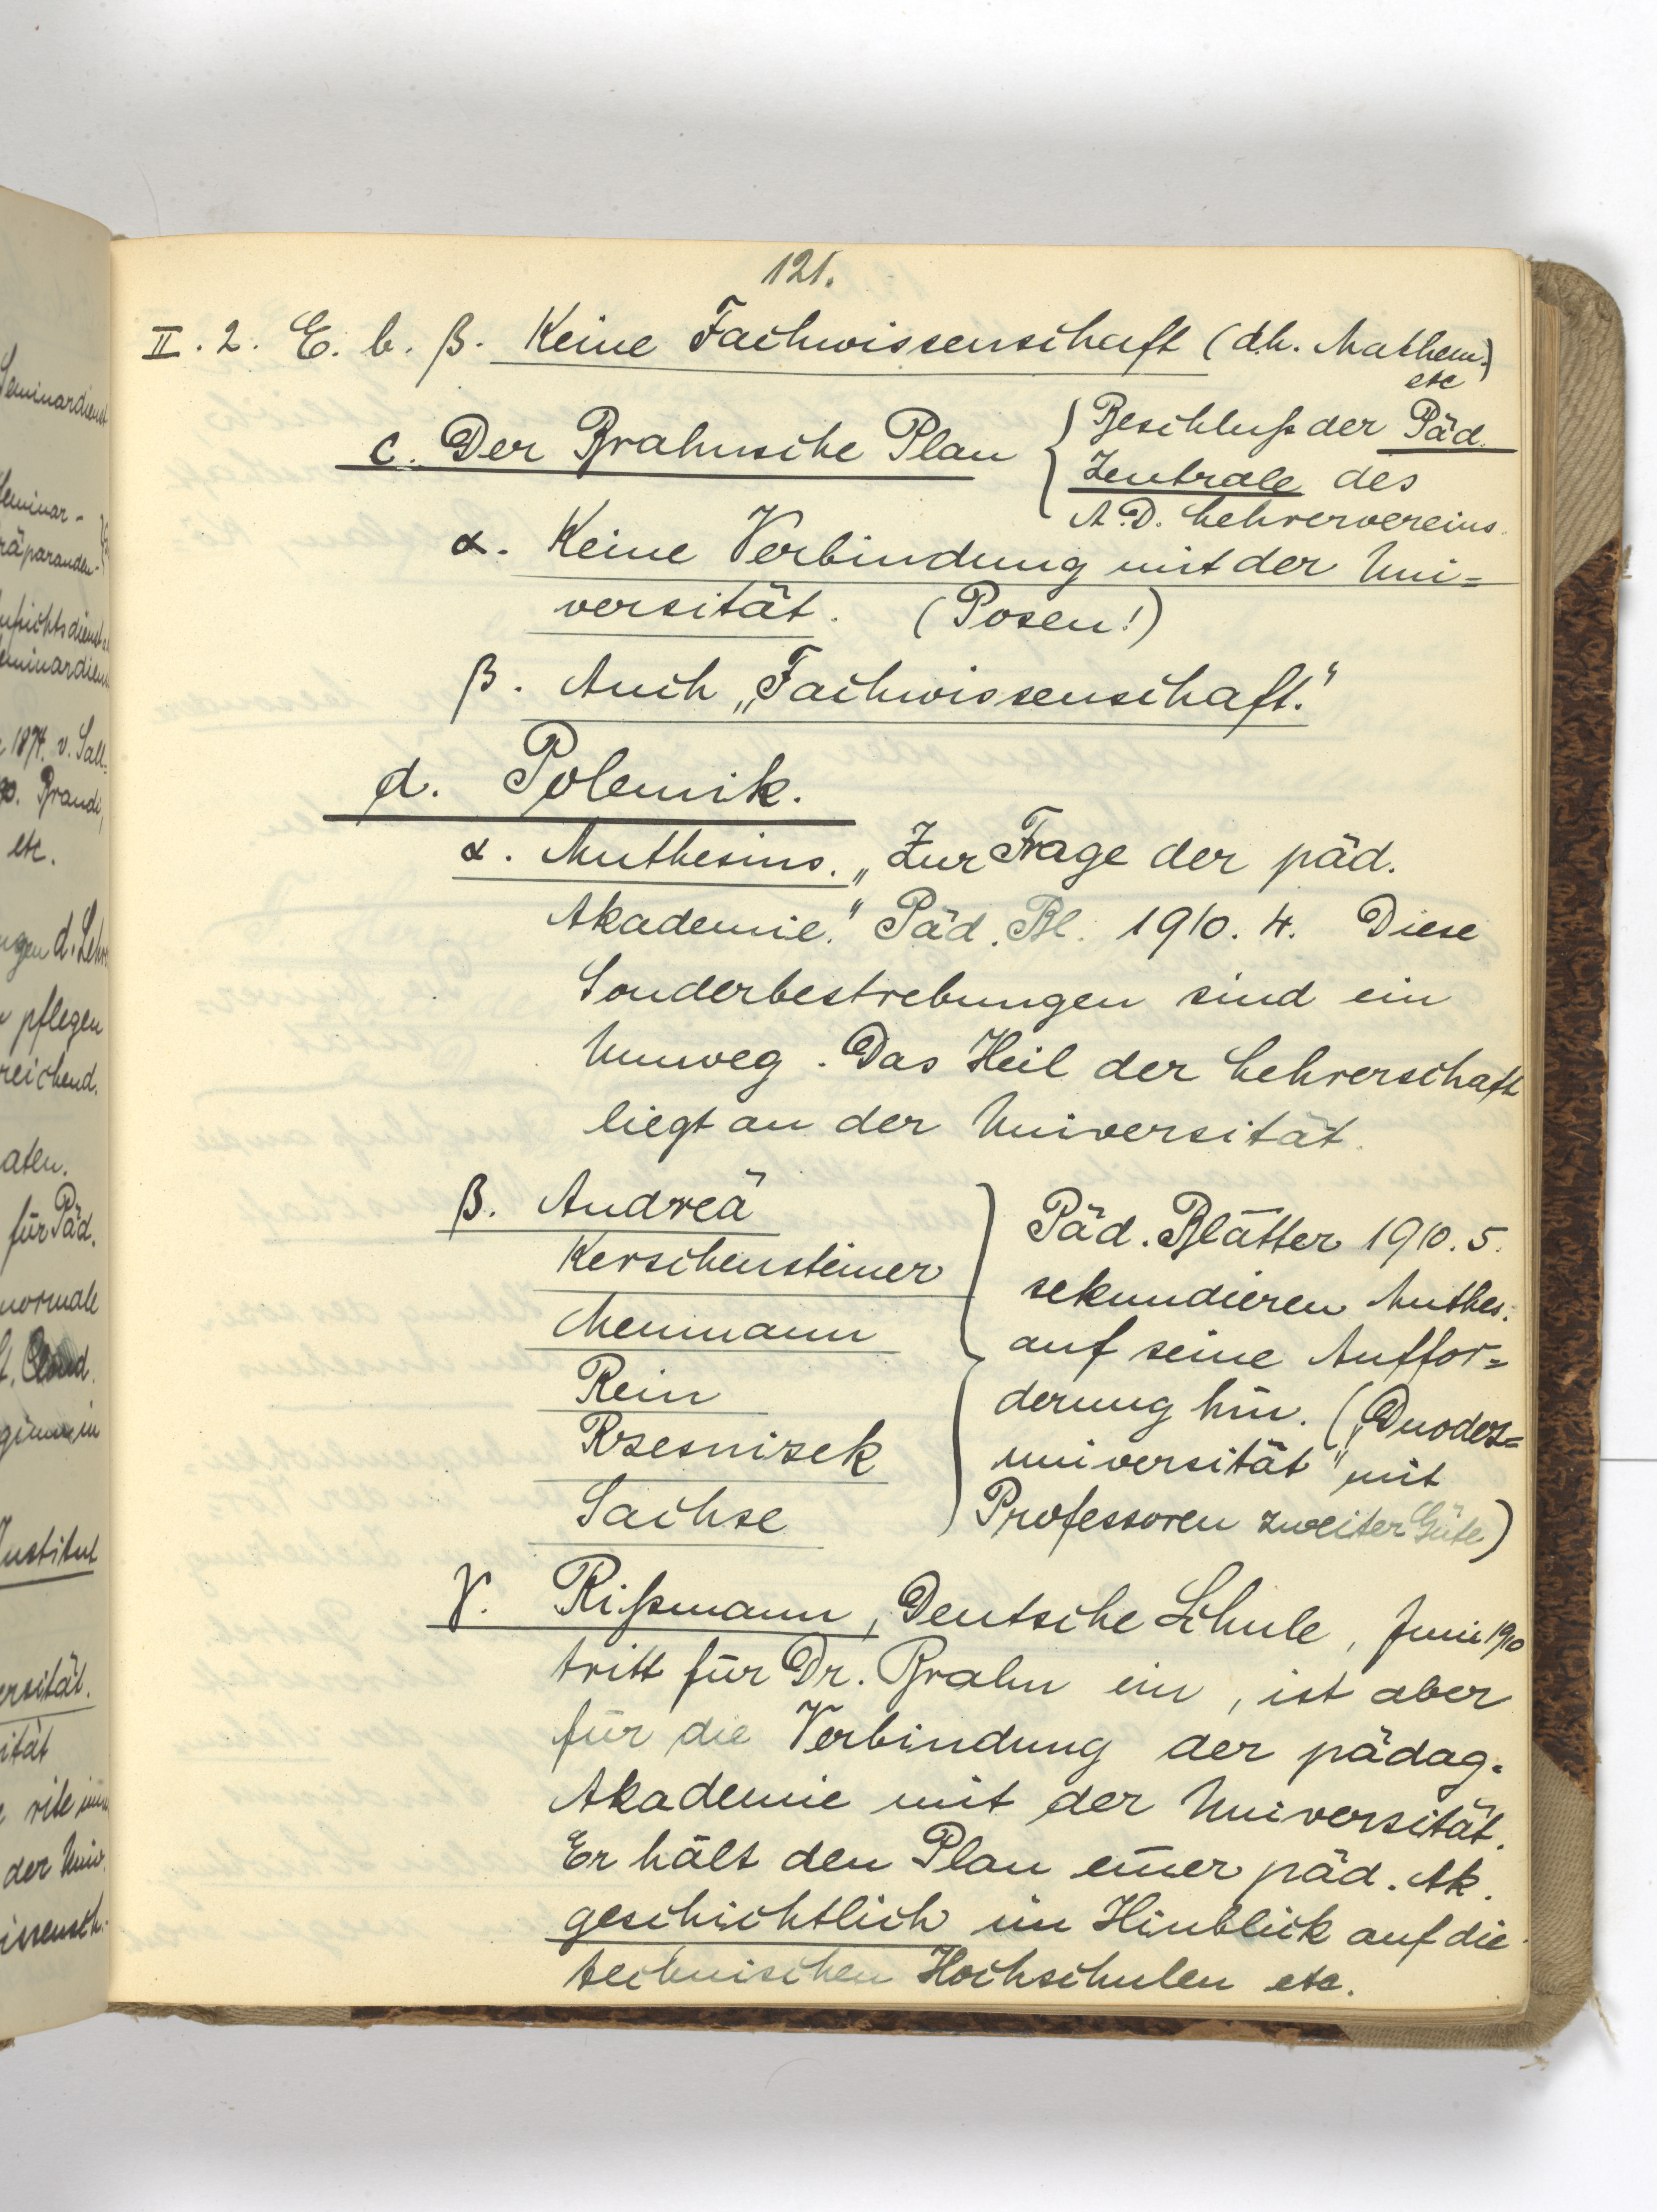 121.
II. 2. E. b. β. Keine Fachwissenschaft (d.h. Mathem.)
etc
c. Der Brahnsche Plan
Beschluß der Päd.
Zentrale des
A. D. Lehrervereins.
α. Keine Verbindung mit der Uni=
versität. (Posen!)
β. Auch „Fachwissenschaft."
d. Polemik.
α. Muthesius. „Zur Frage der päd.
Akademie." Päd. Bl. 1910. 4. Diese
Sonderbestrebungen sind ein
Umweg. Das Heil der Lehrerschaft
liegt an der Universität.
β. Andreä
Kerschensteiner
Meumann
Rein
Rzesnizek
Sachse
Päd. Blätter 1910. 5.
sekundieren Muthes.
auf seine Auffor=
derung hin. („Duodez=
universität" mit
Professoren zweiter Güte)
γ. Rißmann, Deutsche Schule, Juni 1910
tritt für Dr. Brahn ein, ist aber
für die Verbindung der pädag.
Akademie mit der Universität.
Er hält den Plan einer päd. Ak.
geschichtlich im Hinblick auf die
technischen Hochschulen etc.
Seminardienst
Seminar-
räparanden-
Seminardienst
1874. v. Sall-
Brandi,
etc.
d. Lehr
pflegen
reichend.
aten.
für Päd.
normale
Institut
ersität.
ität
der Univ.